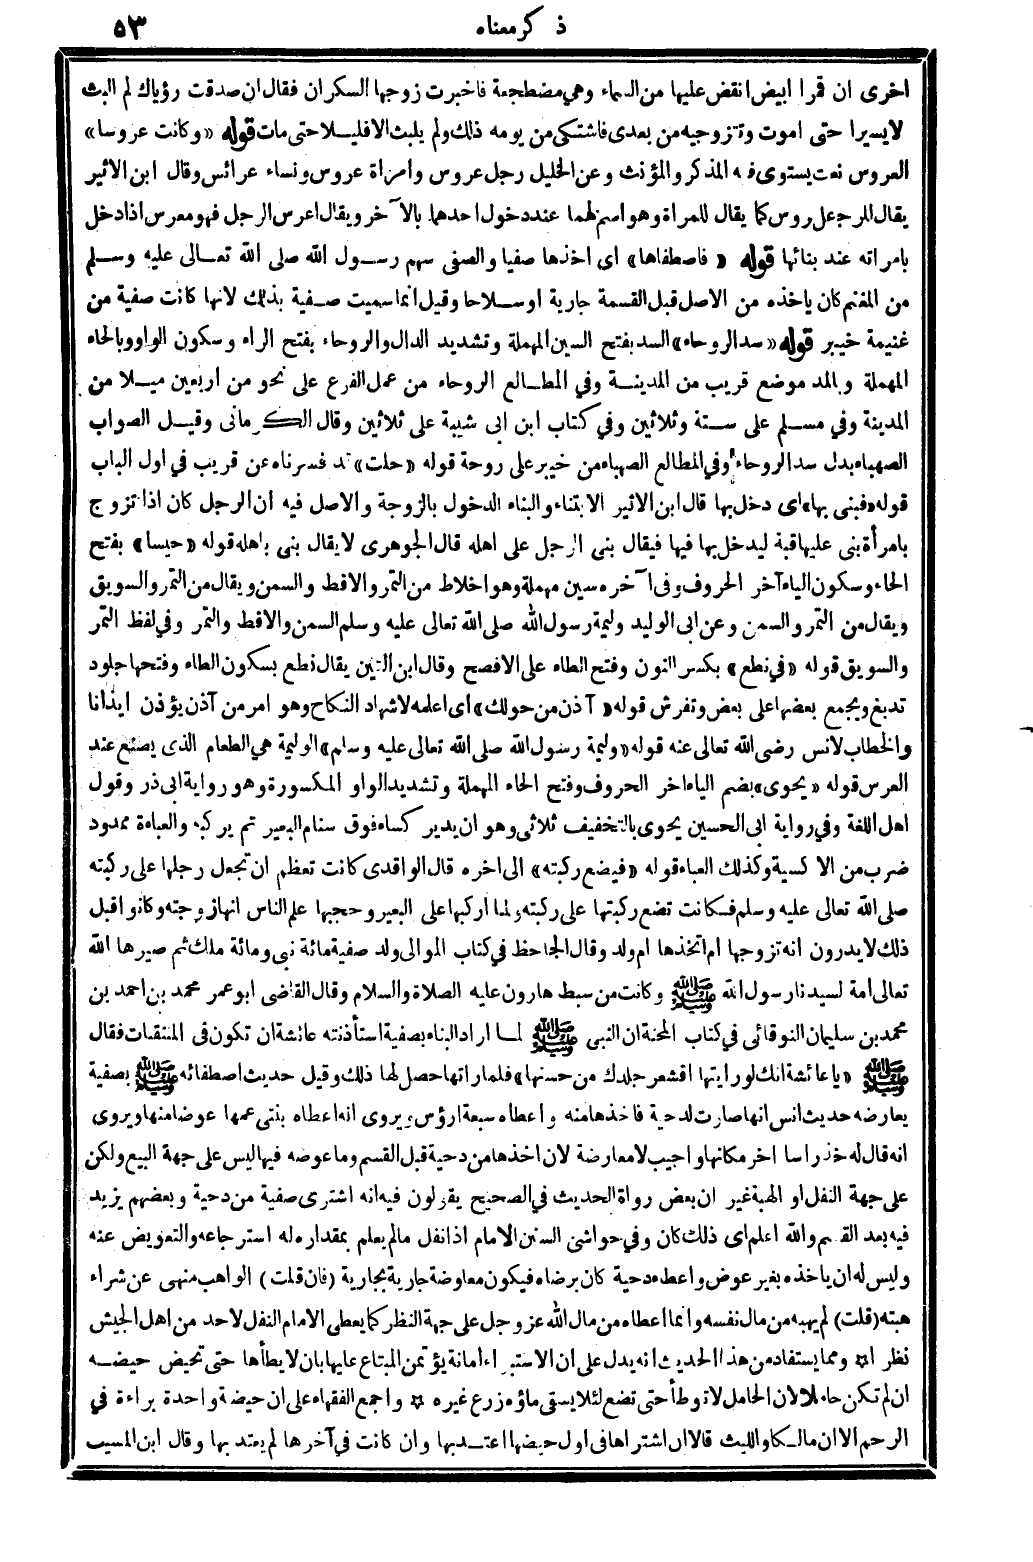 ذكر معناه
٥٣
اخرى ان قمرا ابيض انقض عليها من السماء وهي مضطجعة فاخبرت زوجها السكران فقال ان صدقت رؤياك لم البث
لايسيرا حتى اموت وتتزوجيه من بعدى فاشتكى من يومه ذلك ولم يلبث الاقليلا حتى مات قوله «وكانت عروسا»
العروس نعت يستوى فيه المذكر والمؤنث وعن الخليل رجل عروس وامراة عروس ونساء عرائس وقال ابن الاثير
يقال للرجل عروس كما يقال للمراة وهو اسم لهما عند دخول احدهما بالآخر ويقال اعرس الرجل فهو معرس اذا دخل
بامراته عند بنائها قوله «فاصطفاها» اى اخذها صفيا والصفى سهم رسول الله صلى الله تعالى عليه وسلم
من المغنم كان ياخذه من الاصل قبل القسمة جارية او سلاحا وقيل انما سميت صفية بذلك لانها كانت صفية من
غنيمة خيبر قوله «سد الروحاء» السد بفتح السين المهملة وتشديد الدال والروحاء بفتح الراء وسكون الواو وبالحاء
المهملة وبالمد موضع قريب من المدينة وفي المطالع الروحاء من عمل الفرع على نحو من اربعين ميلا من
المدينة وفي مسلم على ستة وثلاثين وفي كتاب ابن ابى شيبة على ثلاثين وقال الكرمانى وقيل الصواب
الصهباء بدل سد الروحاء وفي المطالع الصهباء من خيبر على روحة قوله «حلت» قد فسرناه عن قريب في اول الباب
قوله «فبنى بها» اى دخل بها قال ابن الاثير الابتناء والبناء الدخول بالزوجة والاصل فيه ان الرجل كان اذا تزوج
بامرأة بنى عليها قبة ليدخل بها فيها فيقال بنى الرجل على اهله قال الجوهرى لا يقال بنى باهله قوله «حيسا» بفتح
الحاء وسكون الياء آخر الحروف وفى آخره سين مهملة وهو اخلاط من التمر والاقط والسمن ويقال من التمر والسويق
ويقال من التمر والسمن وعن ابى الوليد وليمة رسول الله صلى الله تعالى عليه وسلم السمن والاقط والتمر وفي لفظ التمر
والسويق قوله «في نطع» بكسر النون وفتح الطاء على الافصح وقال ابن التين يقال نطع بسكون الطاء وفتحها جلود
تدبغ ويجمع بعضها على بعض وتفرش قوله «آذن من حولك» اى اعلمه لاشهاد النكاح وهو امر من آذن يؤذن ايذانا
والخطاب لانس رضى الله تعالى عنه قوله «وليمة رسول الله صلى الله تعالى عليه وسلم» الوليمة هي الطعام الذى يصنع عند
العرس قوله «يحوى» بضم الياء اخر الحروف وفتح الحاء المهملة وتشديد الواو المكسورة وهو رواية ابى ذر وقول
اهل اللغة وفي رواية ابى الحسين يحوى بالتخفيف ثلاثى وهو ان يدير كساء فوق سنام البعير ثم يركبه والعباءة ممدود
ضرب من الاكسية وكذلك العباء قوله «فيضع ركبته» الى اخره قال الواقدى كانت تعظم ان تجعل رجلها على ركبته
صلى الله تعالى عليه وسلم فكانت تضع ركبتها على ركبته ولما اركبها على البعير وحجبها علم الناس انها زوجته وكانوا قبل
ذلك لا يدرون انه تزوجها ام اتخذها ام ولد وقال الجاحظ في كتاب الموالى ولد صفية مائة نبى ومائة ملك ثم صيرها الله
تعالى امة لسيدنا رسول الله ﷺ وكانت من سبط هارون عليه الصلاة والسلام وقال القاضى ابو عمر محمد بن احمد بن
محمد بن سليمان النوقاتى في كتاب المحنة ان النبى ﷺ لما اراد البناء بصفية استأذنته عائشة ان تكون في المنتقبات فقال
ﷺ «يا عائشة انك لو رايتها اقشعر جلدك من حسنها» فلما راتها حصل لها ذلك وقيل حديث اصطفائه ﷺ بصفية
يعارضه حديث انس انها صارت لدحية فاخذها منه واعطاه سبعة ارؤس ويروى انه اعطاه بنتى عمها عوضا منها ويروى
انه قال له خذ راسا اخر مكانها واجيب لا معارضة لان اخذها من دحية قبل القسم وما عوضه فيها ليس على جهة البيع ولكن
على جهة النفل او الهبة غير ان بعض رواة الحديث في الصحيح يقولون فيه انه اشترى صفية من دحية وبعضهم يزيد
فيه بعد القسم والله اعلم اى ذلك كان وفي حواشى السنن الامام اذا نفل مالم يعلم بمقداره له استرجاعه والتعويض عنه
وليس له ان ياخذه بغير عوض واعطاء دحية كان برضاه فيكون معاوضة جارية بجارية (فان قلت) الواهب منهى عن شراء
هبته (قلت) لم يهبه من مال نفسه وانما اعطاه من مال الله عز وجل على جهة النظر كما يعطى الامام النفل لاحد من اهل الجيش
نظرا ۞ ومما يستفاد من هذا الحديث انه يدل على ان الاستبراء امانة يؤتمن المبتاع عليها بان لا يطأها حتى تحيض حيضة
ان لم تكن حاملا لان الحامل لا توطأ حتى تضع لئلا يسقى ماؤه زرع غيره ۞ واجمع الفقهاء على ان حيضة واحدة براءة في
الرحم الا ان مالكا والليث قالا ان اشتراها في اول حيضها اعتد بها وان كانت في آخرها لم يعتد بها وقال ابن المسيب